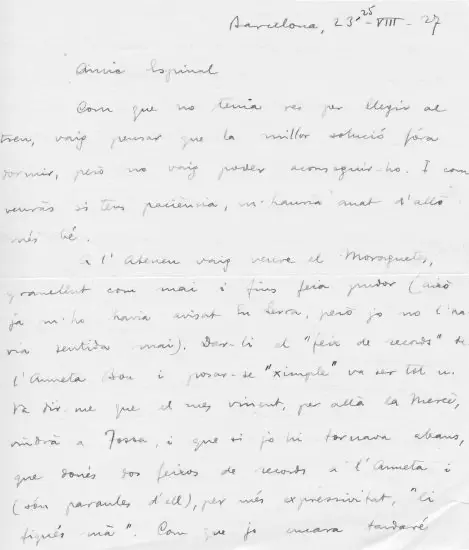 Barcelona, 23-25-VIII-27
Amic Espinal
Com que no tenia res per llegir al
tren, vaig pensar que la millor solució fóra
dormir, però no vaig poder aconseguir-ho. I com
veuràs si tens paciència, m'hauria anat d'allò
més bé.
A l'Ateneu vaig veure el Moraguetes,
com mai i fins feia pudor (això
ja m'ho havia avisat tu Serra, però jo no l'ha
via sentida mai). Dar-li el "feix de records" de
l'Anneta i posar-se "ximple" va ser tot u.
Va dir-me que el mes vinent, per allà la Mercè,
vindrà a Tossa, i que si jo hi tornava abans,
que donés dos feixos de records a l'Anneta i
(són paraules d'ell), per més expressivitat, "li
fiqués mà". Com que jo encara tardaré